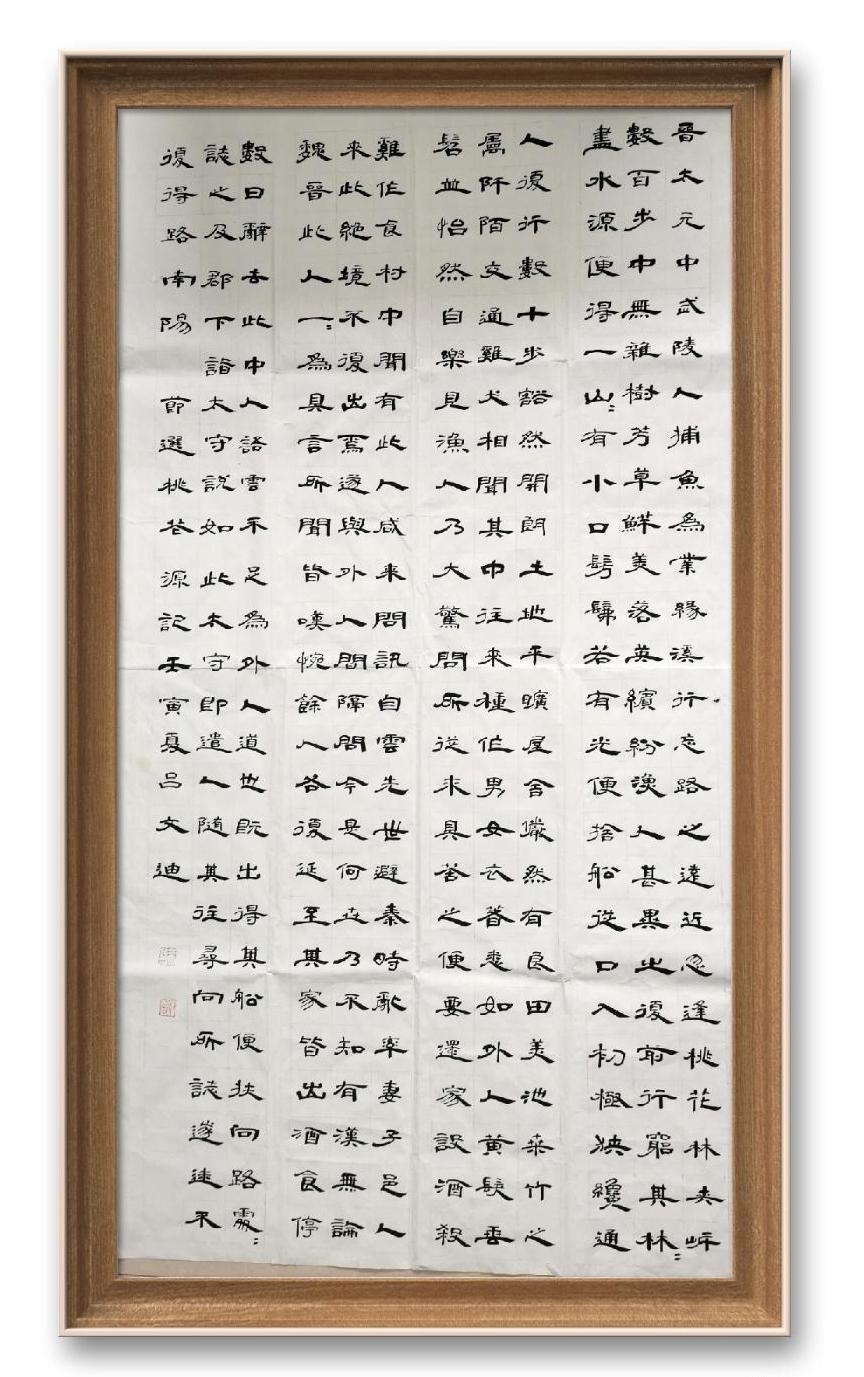 晉太元中武陵人捕魚為業緣溪行忘路之遠近忽逢桃花林夾岸
數百步中無雜樹芳草鮮美落英繽紛漁人甚異之復前行窮其林〻
盡水源便得一山〻有小口髣髴若有光便捨船從口入初極狹纔通
人復行數十步豁然開朗土地平曠屋舍儼然有良田美池桑竹之
屬阡陌交通雞犬相聞其中往来種作男女衣着悉如外人黃髮垂
髫並怡然自樂見漁人乃大驚問所從来具答之便要還家設酒殺
雞作食村中聞有此人咸来問訊自雲先世避秦時亂率妻子邑人
来此絕境不復出焉遂與外人間隔問今是何世乃不知有漢無論
魏晉此人一〻為具言所聞皆嘆惋餘人各復延至其家皆出酒食停
數日辭去此中人語雲不足為外人道也既出得其船便扶向路處〻
誌之及郡下詣太守說如此太守即遣人隨其往尋向所誌遂迷不
復得路南陽 節選桃花源記壬寅夏呂文迪